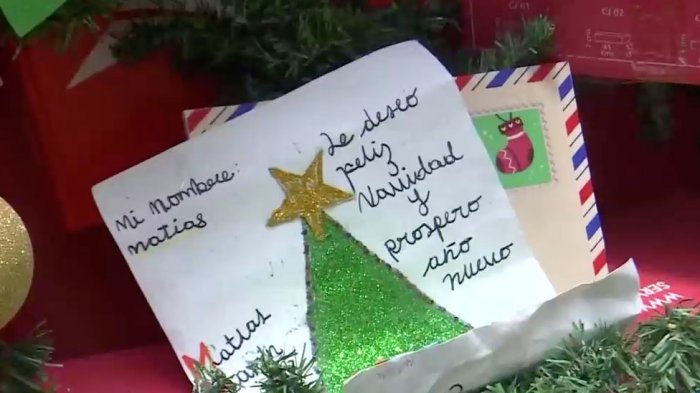 Mi nombre:
matias
Le deseo
feliz
Navidad
y
prospero
año
nuevo
Matias
CJ 02
WWW
SER